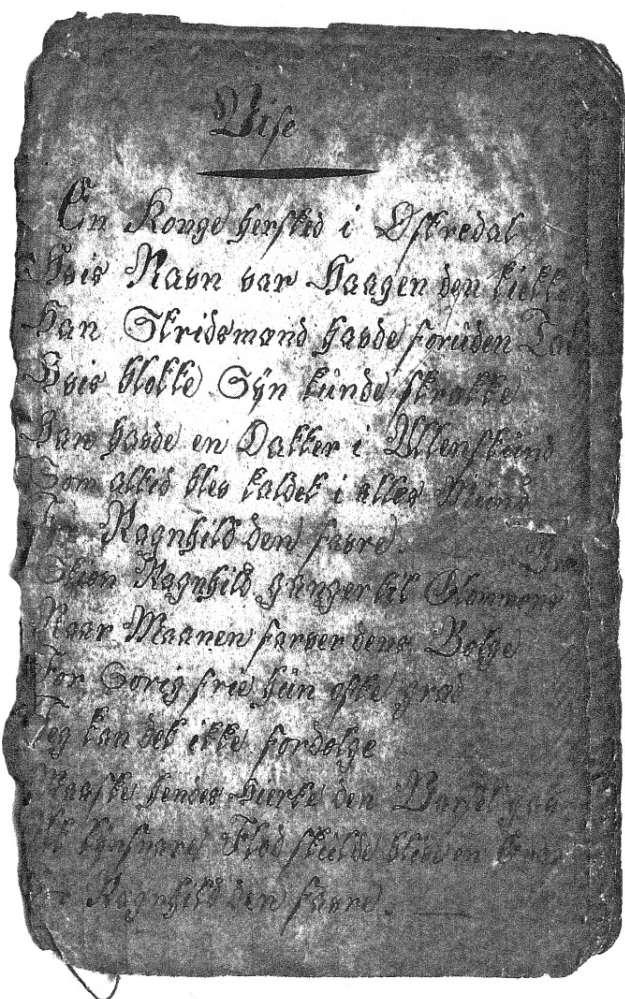 Vise
En Konge hersked i Østredal
Hvis Navn var Haagen den kiekke
Han Stridsmænd havde foruden Tal
Hvis blotte Syn kunde skrække
Han havde en Datter i Ullensund
Som altid blev kaldet i alles Mund
Ragnhild den favre.
Skiøn Ragnhild ganger til Glommens
Naar Maanen farver dens Bølge
For Sorrig frie hun ofte græd
Jeg kan det ikke fordølge
Maaske hendes Hierte den Vandt gav
lynsnare Flod skulde blive en
Ragnhild den favre.